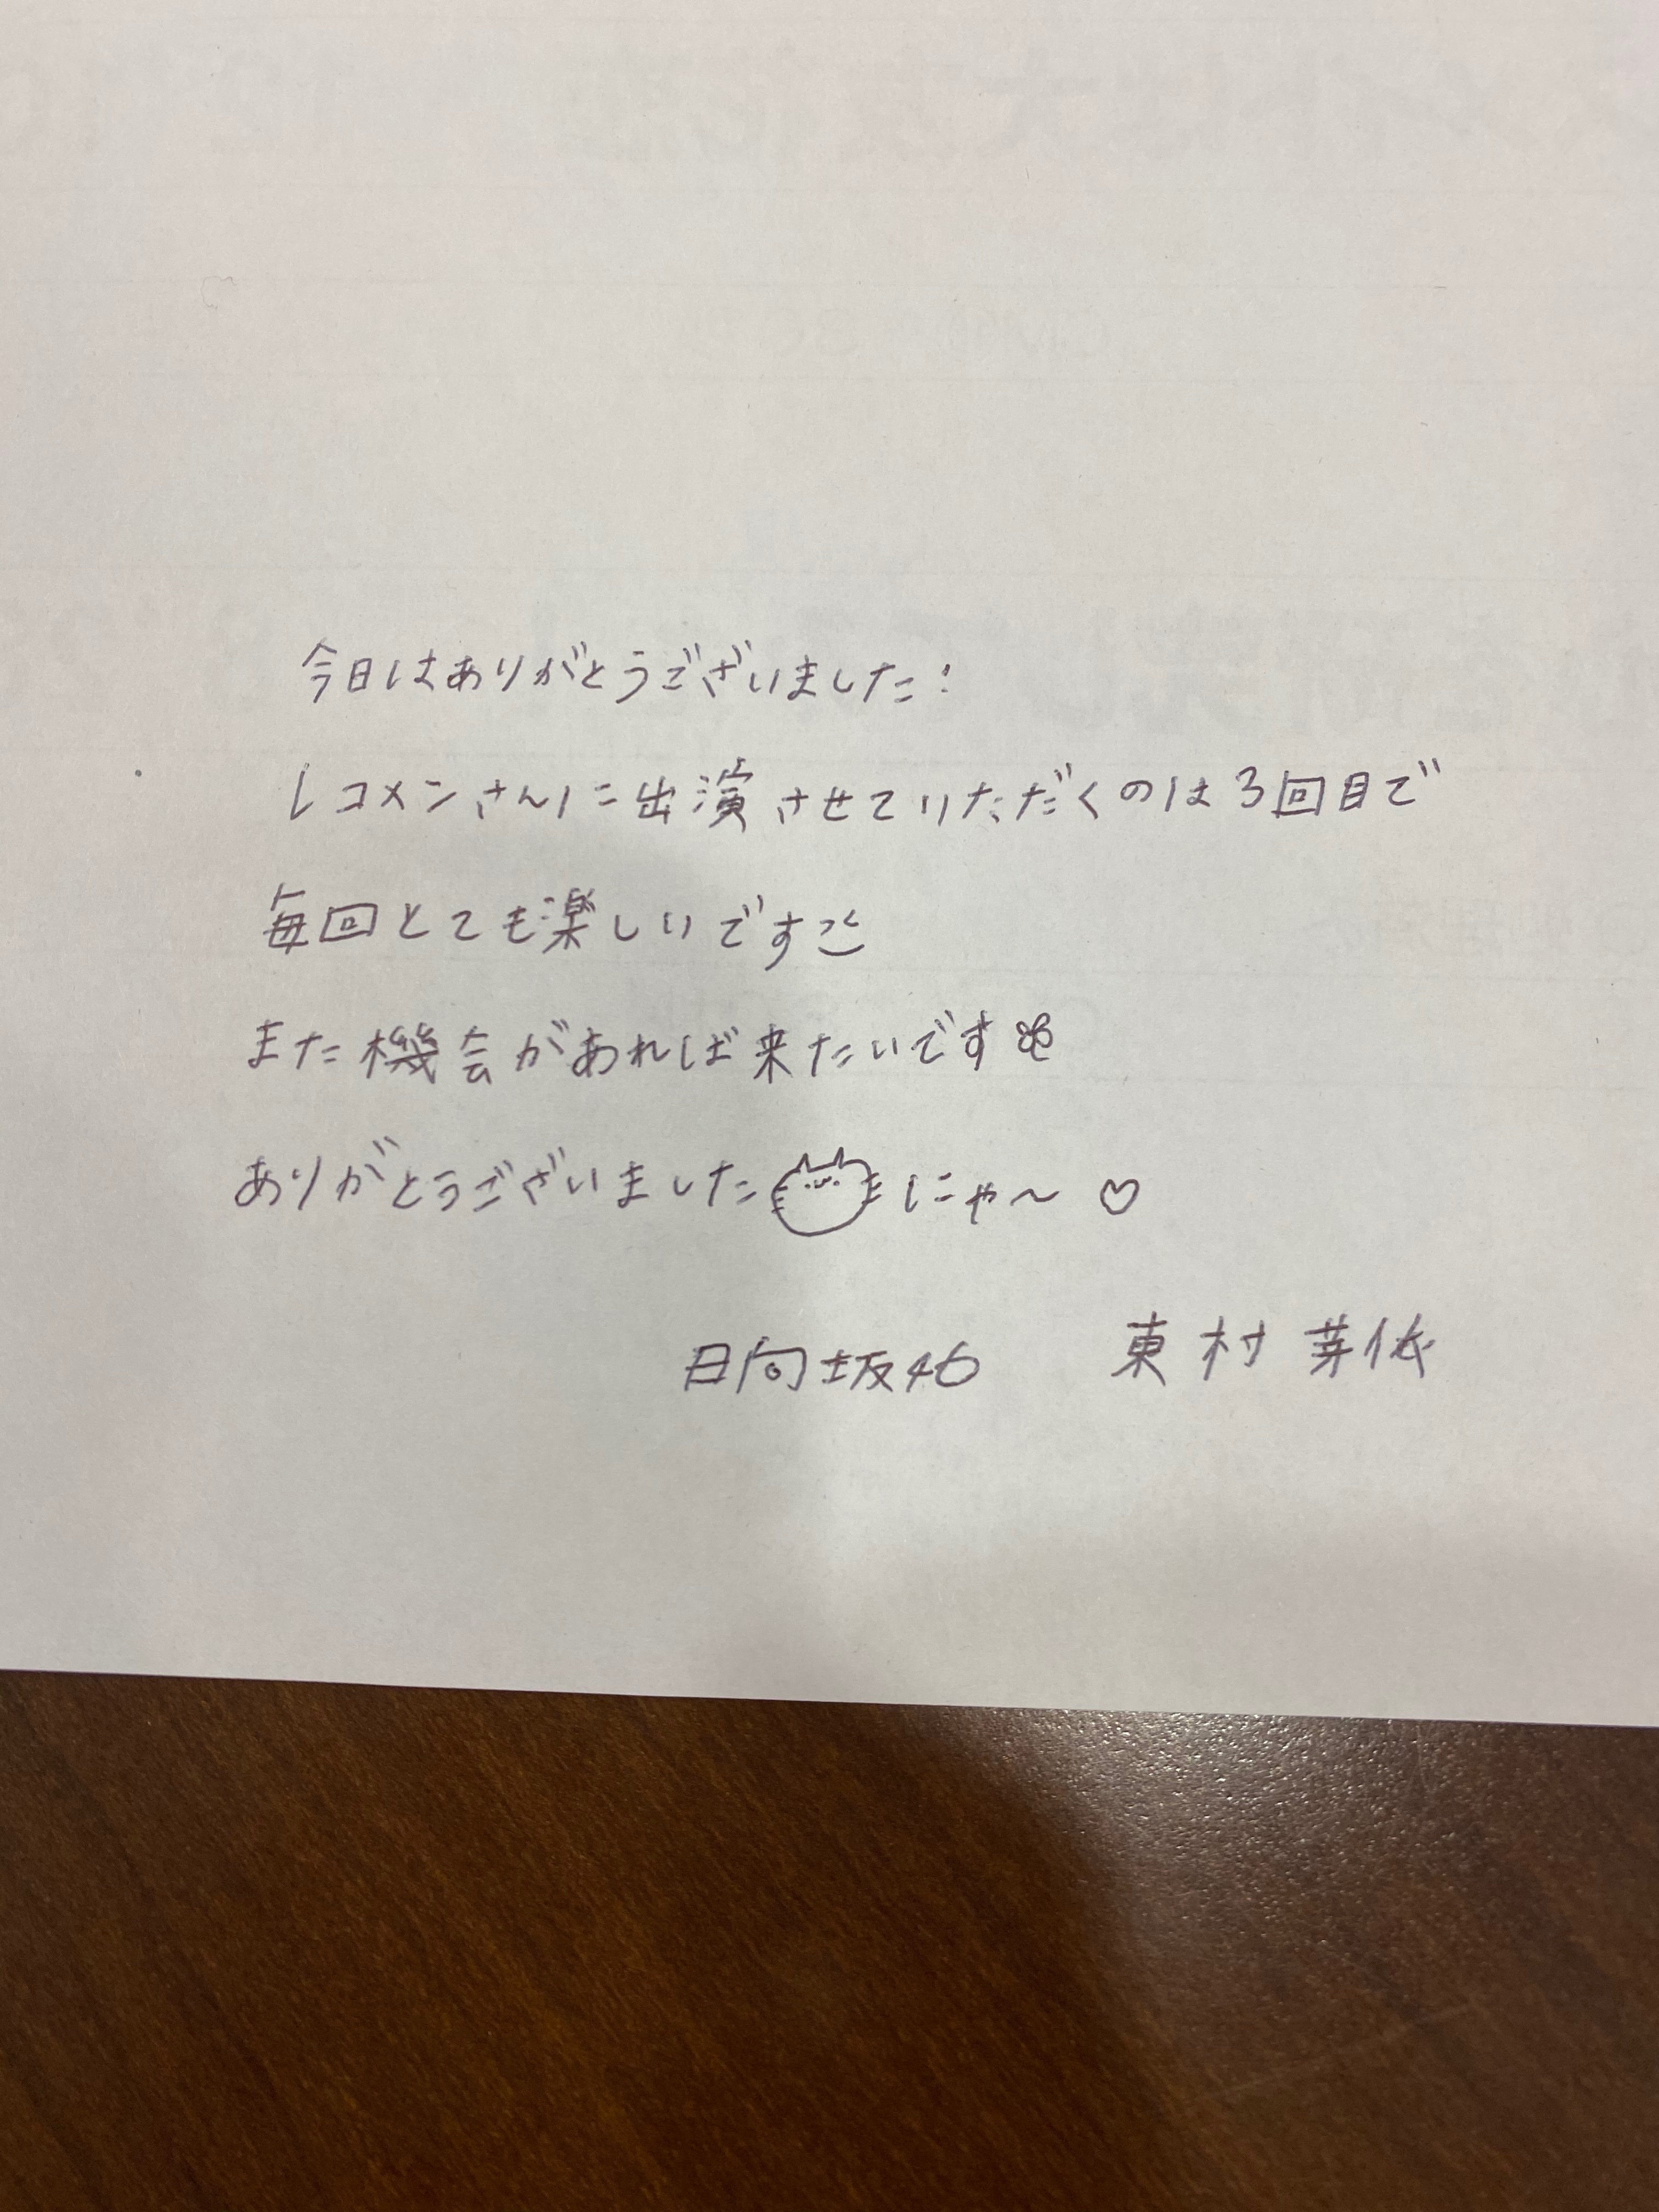 今日はありがとうございました!
レコメンさんに出演させていただくのは3回目で
毎回とても楽しいです
また機会があれば来たいです
ありがとうございました にゃ〜♡
日向坂46 東村芽依